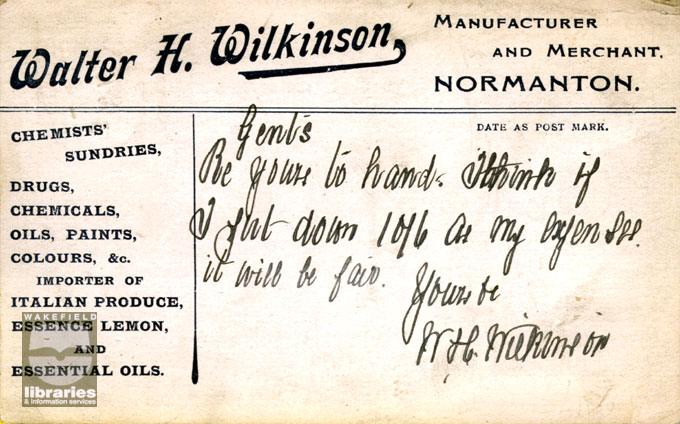 Walter H. Wilkinson,
MANUFACTURER
AND MERCHANT,
NORMANTON.
CHEMISTS'
SUNDRIES,
DRUGS,
CHEMICALS,
OILS, PAINTS,
COLOURS, &c.
IMPORTER OF
ITALIAN PRODUCE,
ESSENCE LEMON,
AND
ESSENTIAL OILS.
DATE AS POST MARK.
Gents
Re yours to hand. I think if
I put down 10/6 as my expenses
it will be fair.
Yours
W H Wilkinson
WAKEFIELD
libraries
& information services